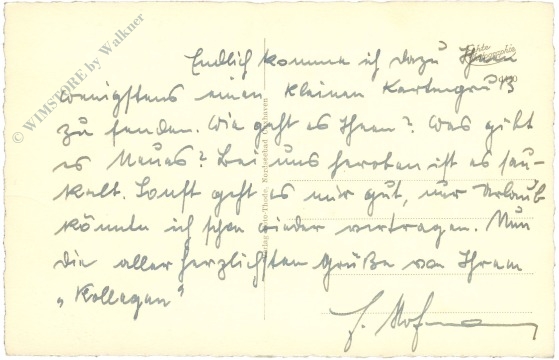 Endlich komme ich dazu Ihnen
wenigstens einen kleinen Kartengruß
zu senden. Wie geht es Ihnen? Was gibt
es Neues? Bei uns heroben ist es sau-
kalt. Sonst geht es mir gut, nur Urlaub
könnte ich schon wieder vertragen. Nun
die allerherzlichsten Grüße von Ihrem
„Kollegen“
F. Hofmann
© WIMSTORE by Walkner
Echte
Photographie